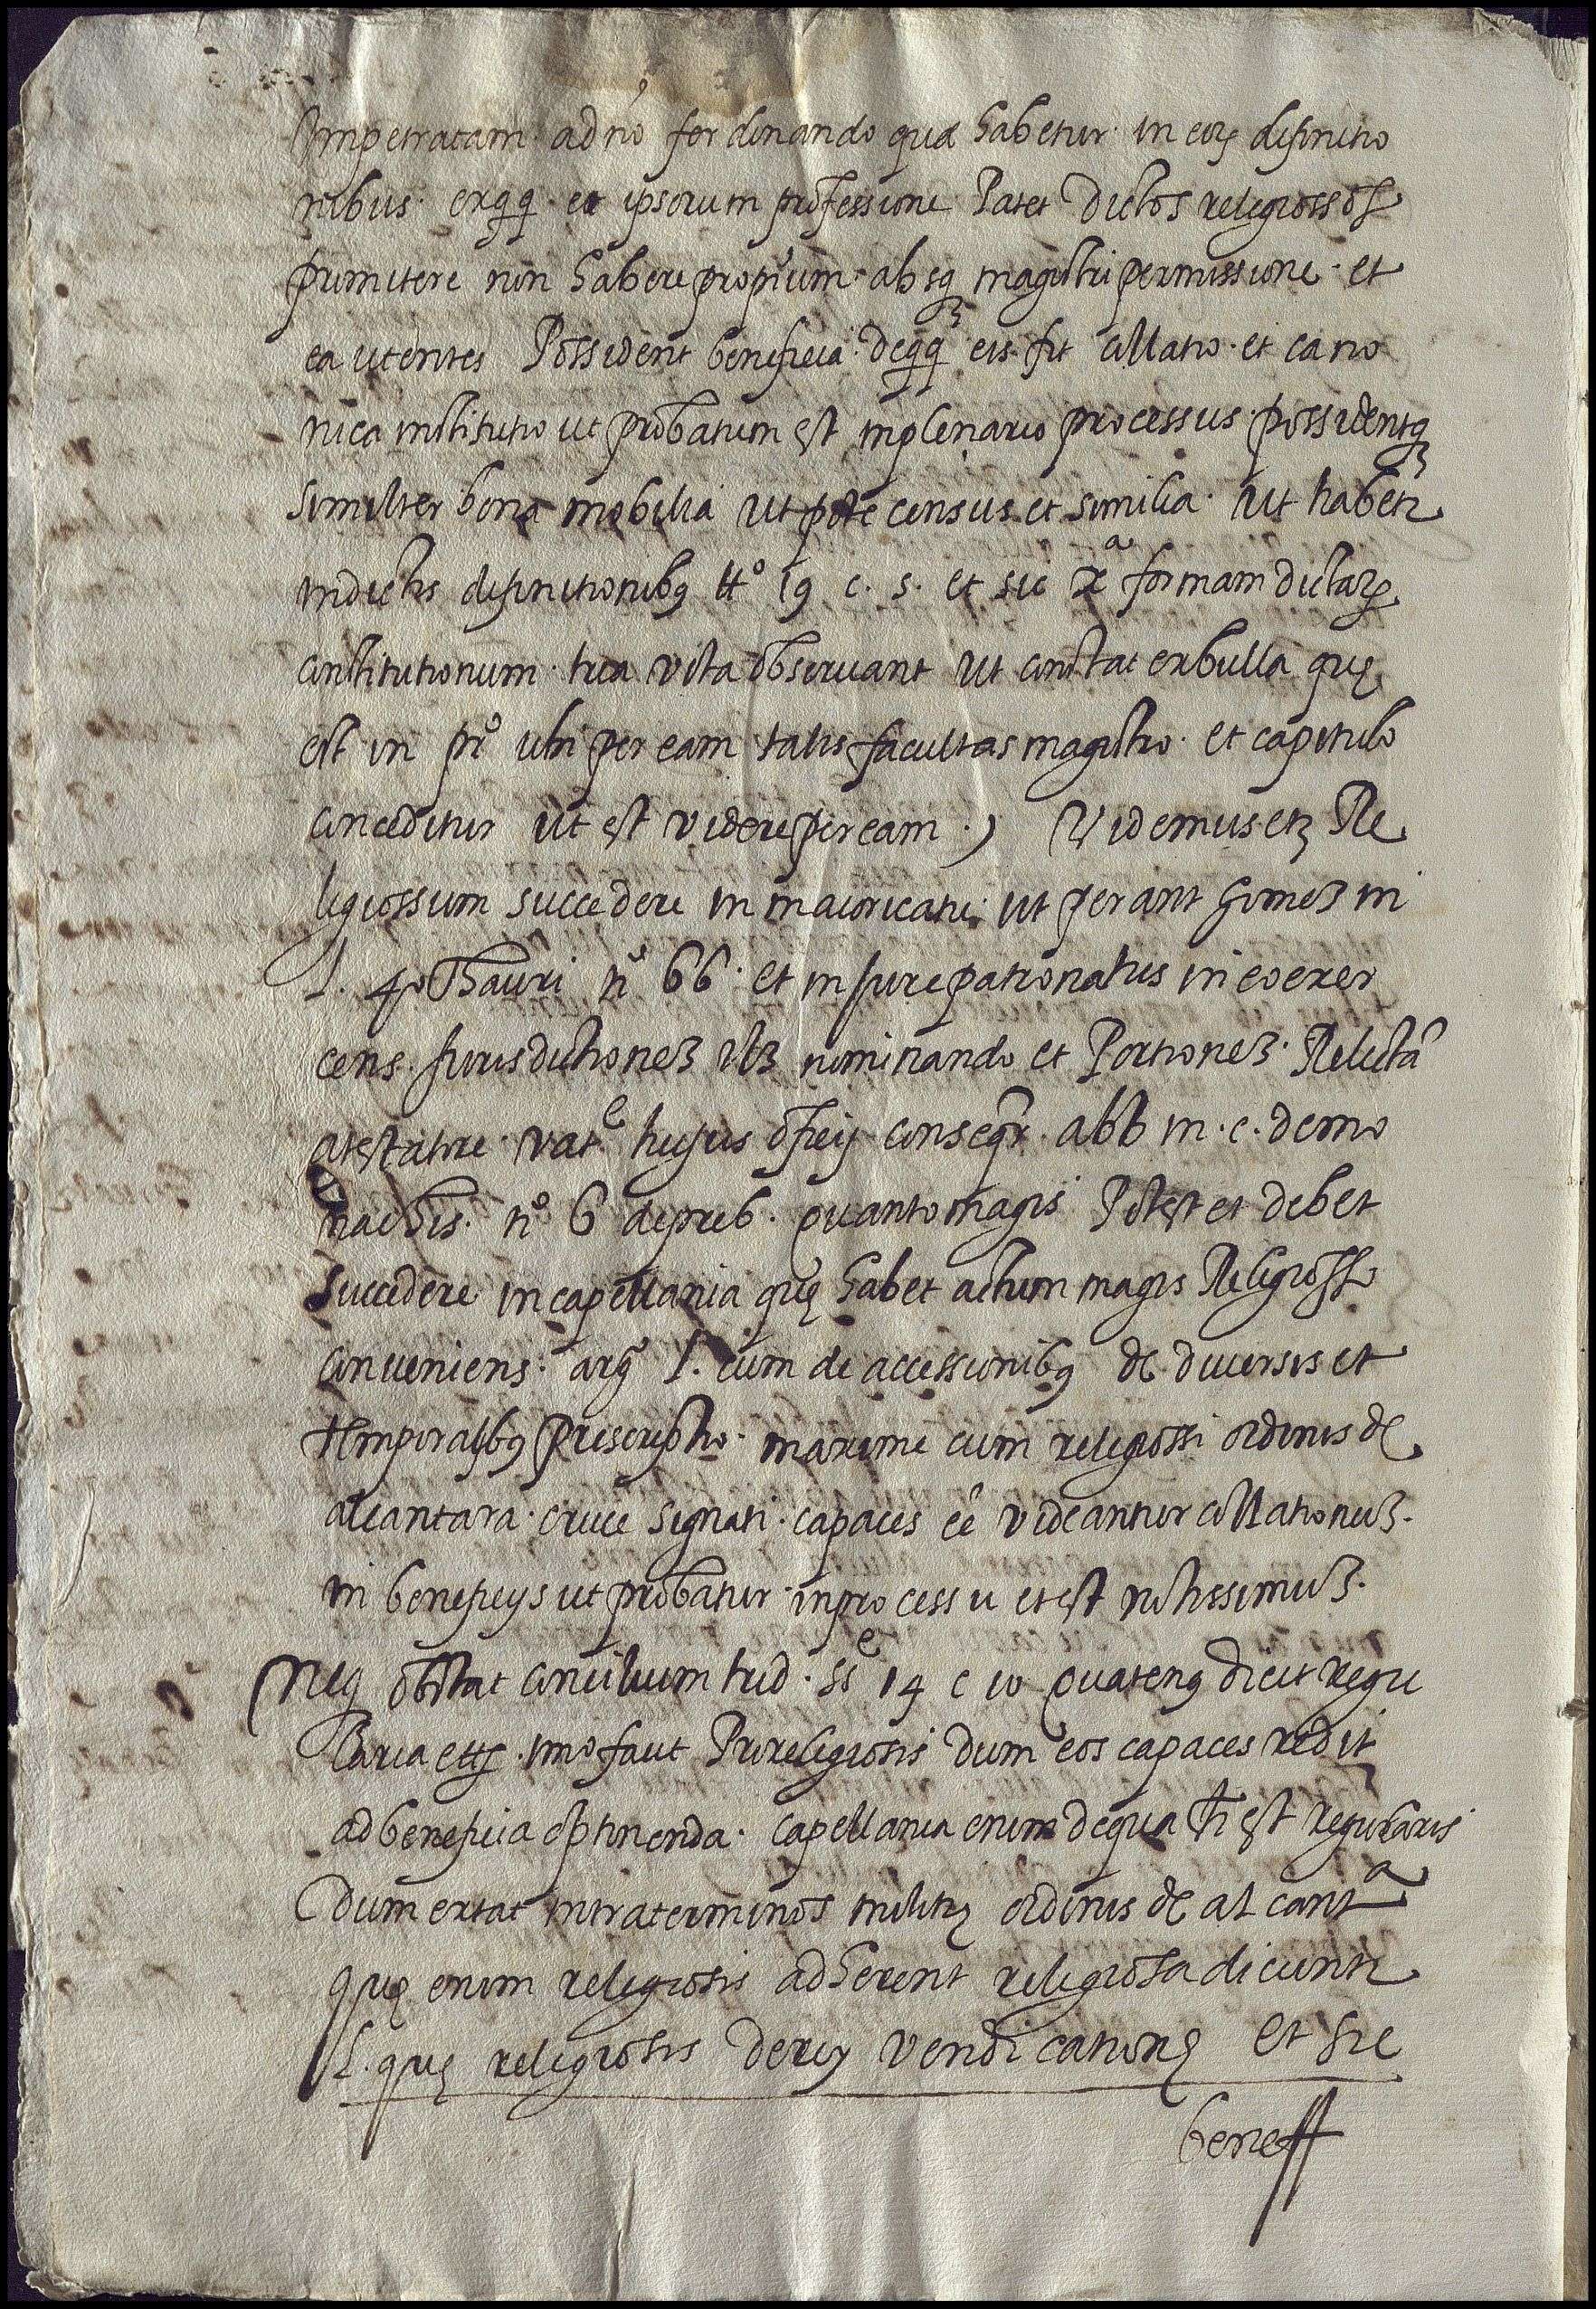 Impetratam ad nõ ferdinando qua habetur in eoꝝ definitio
nibus exqq et ipsorum professione Patet Dictos religiossos
prrmitere non habere proprium absq magistri permissione et
ea utentes Possident beneficia deqq eis fit collatio et cano
nica institutio ut probatum est inplenario processus possidentq
similiter bona mobilia ut pote census et similia ut habetr
indictis definitionibq ttº 19 c. 5. et sic xª formam dictaꝝ
constitutionum tria vota observant ut constat exbulla quę
est in prº ubi per eam talis facultas magistro et capitulo
conceditur ut est videre per eam .) Videmus etz Re
ligiossum succedere in maioricatu ut per ant Gomez in
l. 40 Thauri nº 66 et in jure patronatus in eo exer
cens jurisdictionez ulz nominando et Portionez Relictã
a testatore ratᵉ hujus oficij conseqr abb in c. demo
nachis nº 6 depreb. quanto magis Potest et debet
succedere in capellania quę habet actum magis Religiosso
conveniens argº l. cum de accessionibq de diversis et
temporalibq Prescriptio maxime cum religiossi ordinis de
alcantara cruce signati capaces eê videantur collationuz
in beneficijs ut probatur inprocessu et est notissimuz.
Neq obstat concilium trid. ssᵉ 14 c 10 quatenq dicit regu
laria ettz imo faut Pro religiosis dum eos capaces redit
ad beneficia optinenda capellania enim dequa fit est regularis
dum extat intraterminos militię ordinis de alcantª
quę enim religiosis adherent religiosa dicuntr
l. quę religiosis derej vendicationę et sic
beneff